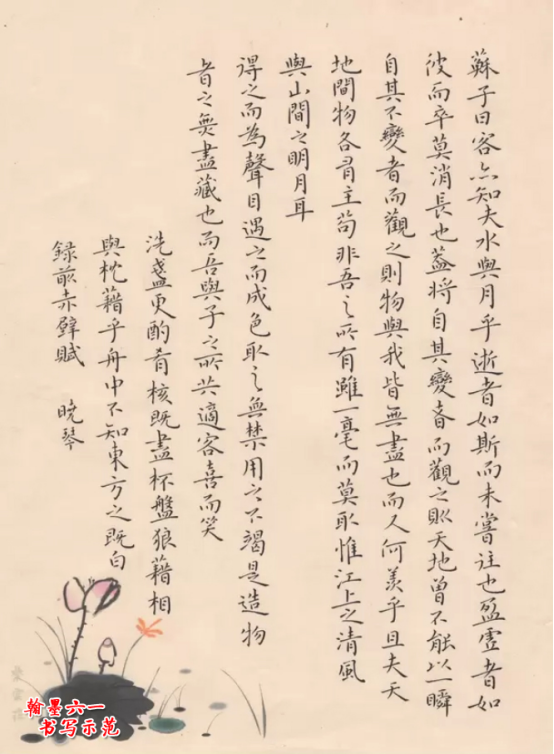 蘇子曰客亦知夫水與月乎逝者如斯而未嘗往也盈虛者如
彼而卒莫消長也蓋將自其變者而觀之則天地曾不能以一瞬
自其不變者而觀之則物與我皆無盡也而又何羨乎且夫天
地間物各有主苟非吾之所有雖一毫而莫取惟江上之清風
與山間之明月耳
得之而為聲目遇之而成色取之無禁用之不竭是造物
者之無盡藏也而吾與子之所共適客喜而笑
洗盞更酌肴核既盡杯盤狼藉相
與枕藉乎舟中不知東方之既白
錄前赤壁賦 曉琴
翰墨六一
书写示范